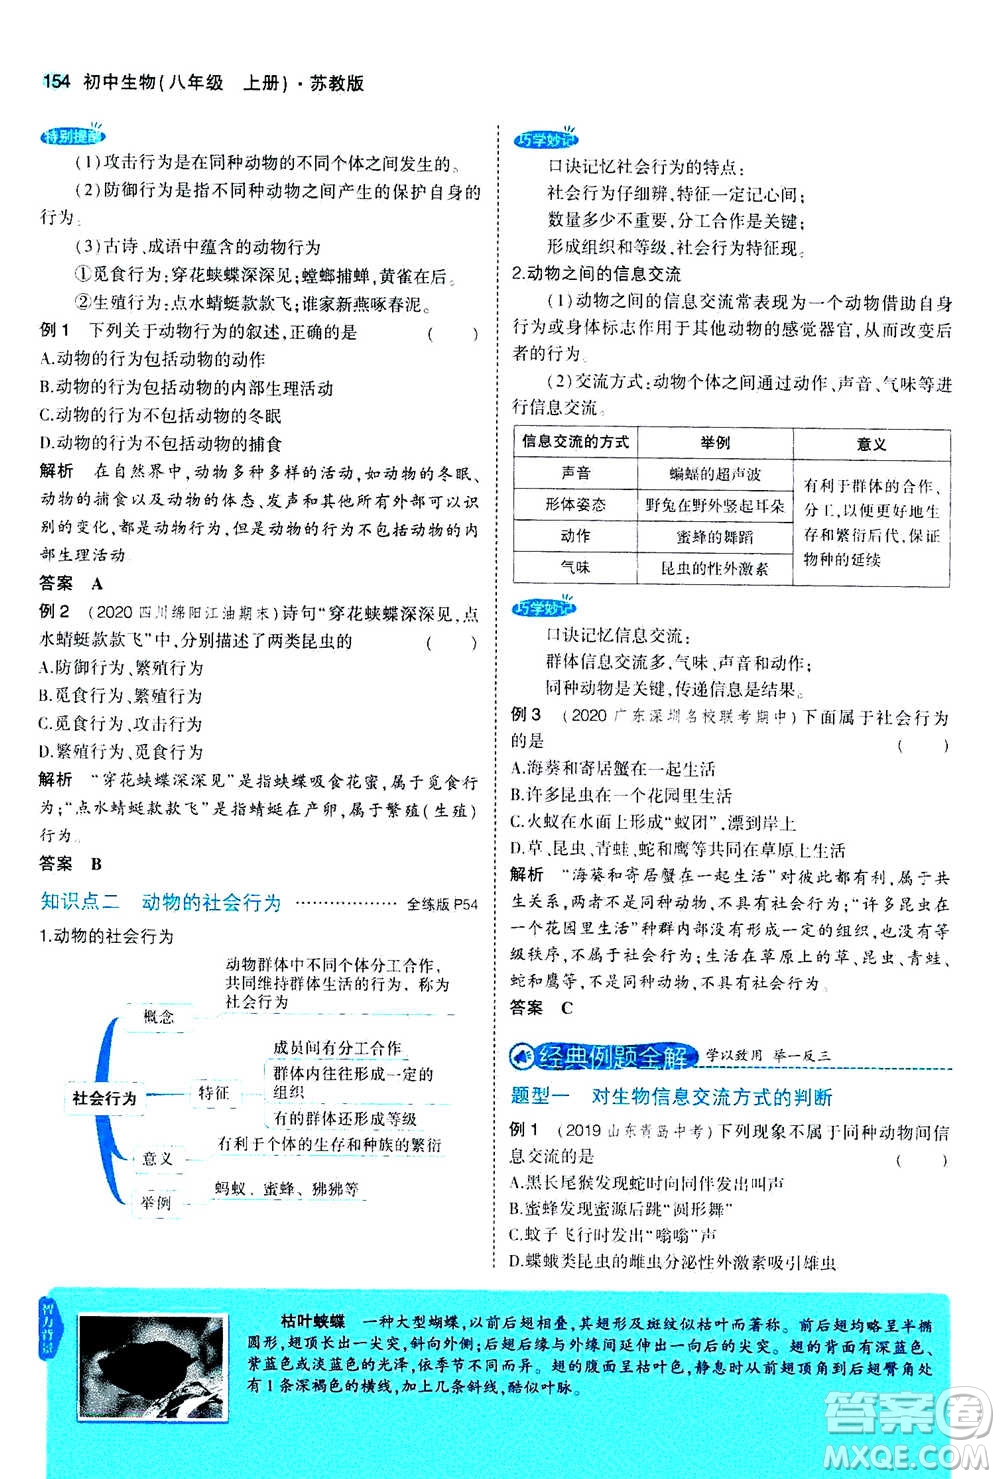 154 初中生物(八年级 上册)·苏教版
特别提醒
(1)攻击行为是在同种动物的不同个体之间发生的。
(2)防御行为是指不同种动物之间产生的保护自身的
行为。
(3)古诗、成语中蕴含的动物行为
①觅食行为:穿花蛱蝶深深见;螳螂捕蝉,黄雀在后。
②生殖行为:点水蜻蜓款款飞;谁家新燕啄春泥。
例1 下列关于动物行为的叙述,正确的是 ( )
A.动物的行为包括动物的动作
B.动物的行为包括动物的内部生理活动
C.动物的行为不包括动物的冬眠
D.动物的行为不包括动物的捕食
解析 在自然界中,动物多种多样的活动,如动物的冬眠、
动物的捕食以及动物的体态、发声和其他所有外部可以识
别的变化,都是动物行为,但是动物的行为不包括动物的内
部生理活动
答案 A
例2 (2020四川绵阳江油期末)诗句“穿花蛱蝶深深见,点
水蜻蜓款款飞”中,分别描述了两类昆虫的 ( )
A.防御行为、繁殖行为
B.觅食行为、繁殖行为
C.觅食行为、攻击行为
D.繁殖行为、觅食行为
解析 “穿花蛱蝶深深见”是指蛱蝶吸食花蜜,属于觅食行
为;“点水蜻蜓款款飞”是指蜻蜓在产卵,属于繁殖(生殖)
行为。
答案 B
知识点二 动物的社会行为 ……………… 全练版 P54
1.动物的社会行为
社会行为
概念
动物群体中不同个体分工合作,
共同维持群体生活的行为,称为
社会行为
特征
成员间有分工合作
群体内往往形成一定的
组织
有的群体还形成等级
意义
有利于个体的生存和种族的繁衍
举例
蚂蚁、蜜蜂、狒狒等
巧学妙记
口诀记忆社会行为的特点:
社会行为仔细辨,特征一定记心间;
数量多少不重要,分工合作是关键;
形成组织和等级,社会行为特征现。
2.动物之间的信息交流
(1)动物之间的信息交流常表现为一个动物借助自身
行为或身体标志作用于其他动物的感觉器官,从而改变后
者的行为。
(2)交流方式:动物个体之间通过动作、声音、气味等进
行信息交流。
信息交流的方式 举例 意义
声音 蝙蝠的超声波
形体姿态 野兔在野外竖起耳朵
动作 蜜蜂的舞蹈
气味 昆虫的性外激素
有利于群体的合作、
分工,以便更好地生
存和繁衍后代,保证
物种的延续
巧学妙记
口诀记忆信息交流:
群体信息交流多,气味、声音和动作;
同种动物是关键,传递信息是结果。
例3 (2020广东深圳名校联考期中)下面属于社会行为
的是 ( )
A.海葵和寄居蟹在一起生活
B.许多昆虫在一个花园里生活
C.火蚁在水面上形成“蚁团”,漂到岸上
D.草、昆虫、青蛙、蛇和鹰等在草原上生活
解析 “海葵和寄居蟹在一起生活”是共生关系,不是社会
行为,两者属于不同种动物,不具有社会行为;“许多昆虫在
一个花园里生活”没有在种群内形成一定的组织,没有等
级秩序,不是社会行为;生活在草原上的草、昆虫、青蛙、
蛇和鹰等,不属于同种动物,不具有社会行为。
答案 C
经典例题全解 学以致用 举一反三
题型一 对生物信息交流方式的判断
例1 (2019山东青岛中考)下列现象不属于同种动物间信
息交流的是 ( )
A.黑长尾猴发现蛇时向同伴发出叫声
B.蜜蜂发现蜜源后跳“圆形舞”
C.蚊子飞行时发出“嗡嗡”声
D.蝶蛾类昆虫的雌虫分泌性外激素吸引雄虫
智力背景
枯叶蛱蝶 一种大型蝴蝶,以前后翅相叠,其翅形及斑纹似枯叶而著称。前后翅均略呈半椭
圆形,翅顶长出一尖突,斜向外侧;后翅后缘与外缘间延伸出一向后的尖突。翅的背面有深蓝色、
紫蓝色或淡蓝色的光泽,依季节不同而异。翅的腹面呈枯叶色,静息时从前翅顶角到后翅臀角处
有1条深褐色的横线,加上几条斜线,酷似叶脉。
答案圈
MXQE.COM